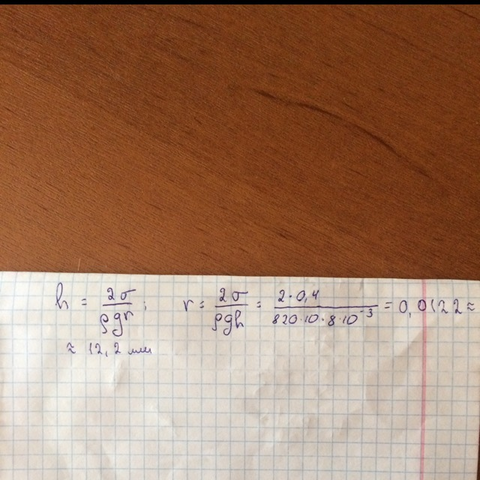 h = 2σ/ρgr ; r = 2σ/ρgh = 2·0,4/820·10·8·10⁻³ = 0,0122 ≈
≈ 12,2 мм